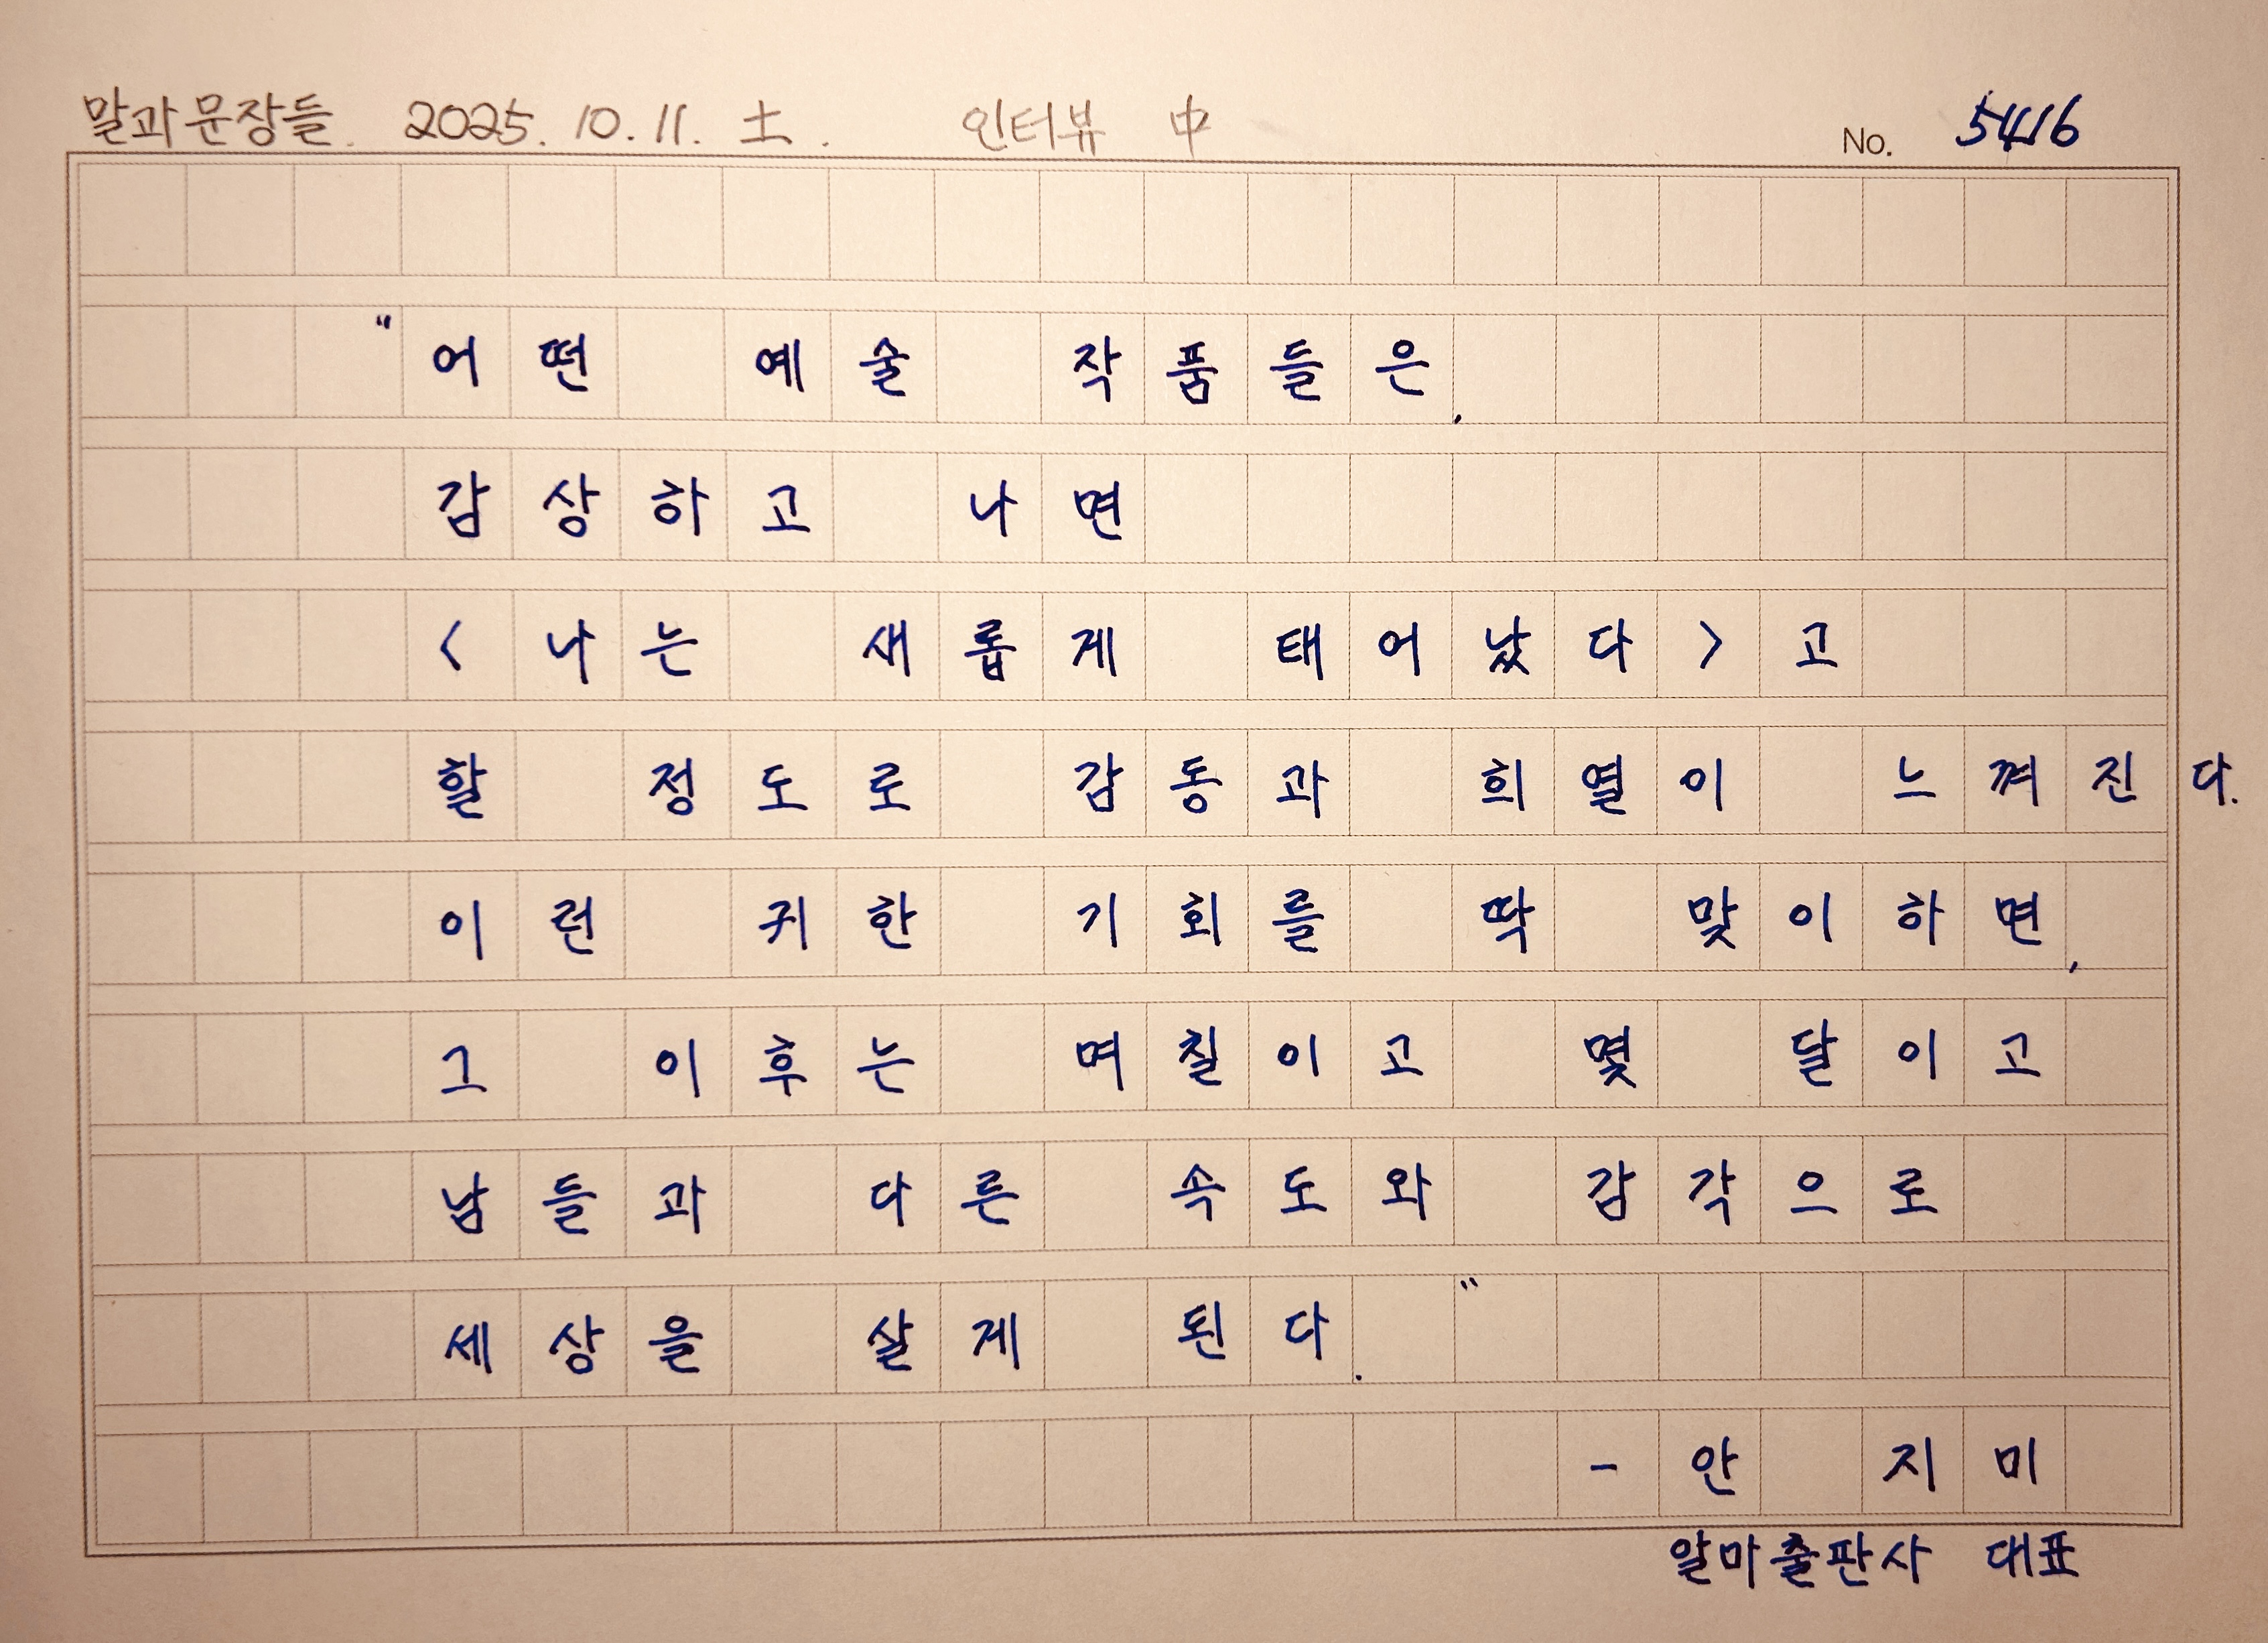 말과 문장들. 2025. 10. 11. 土. 인터뷰 中 No. 5416
"어떤 예술 작품들은,
감상하고 나면
<나는 새롭게 태어났다>고
할 정도로 감동과 희열이 느껴진다.
이런 귀한 기회를 딱 맞이하면,
그 이후는 며칠이고 몇 달이고
남들과 다른 속도와 감각으로
세상을 살게 된다."
- 안 지미
알마출판사 대표